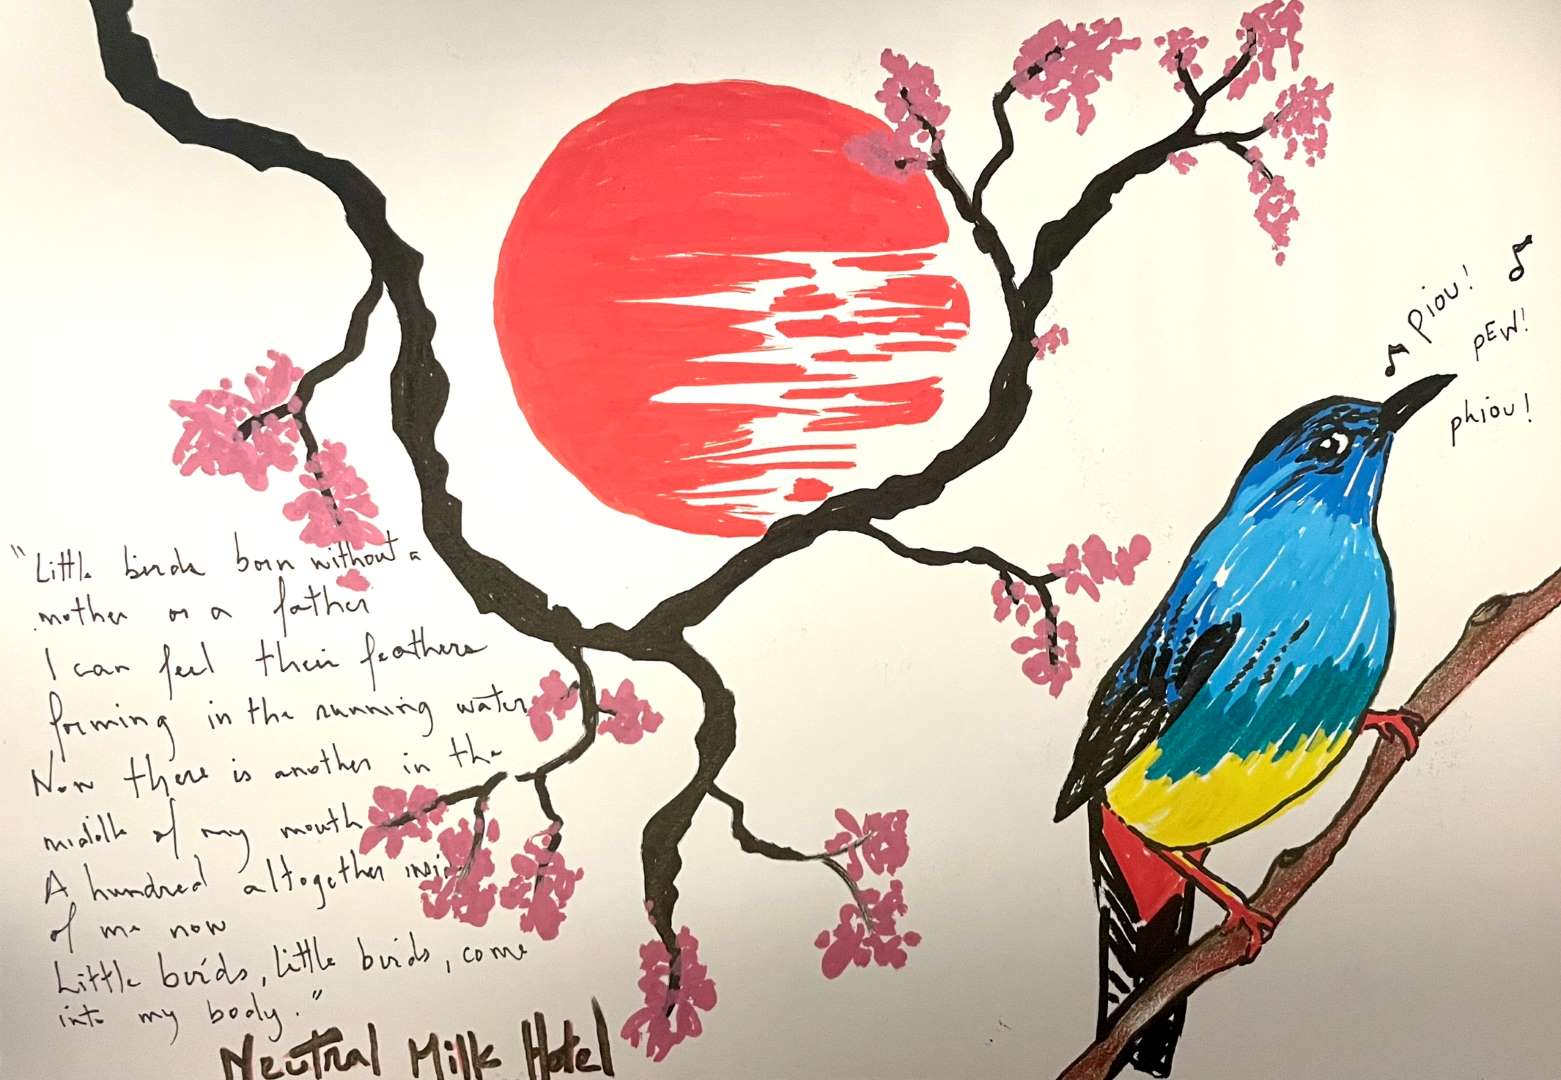 "Little birds born without a
mother or a father
I can feel their feathers
forming in the running water
Now there is another in the
middle of my mouth
A hundred altogether insid
of me now
Little birds, little birds, come
into my body."
Neutral Milk Hotel
♪ Piou! ♪
pEW!
phiou!